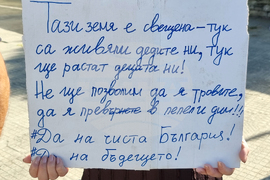 Тази земя е свещена – тук
са живяли дедите ни, тук
ще растат децата ни!
Не ще позволим да я тровите,
да я превърнете в пепел и дим!!
#Да на чиста България!
#Да на бъдещето!